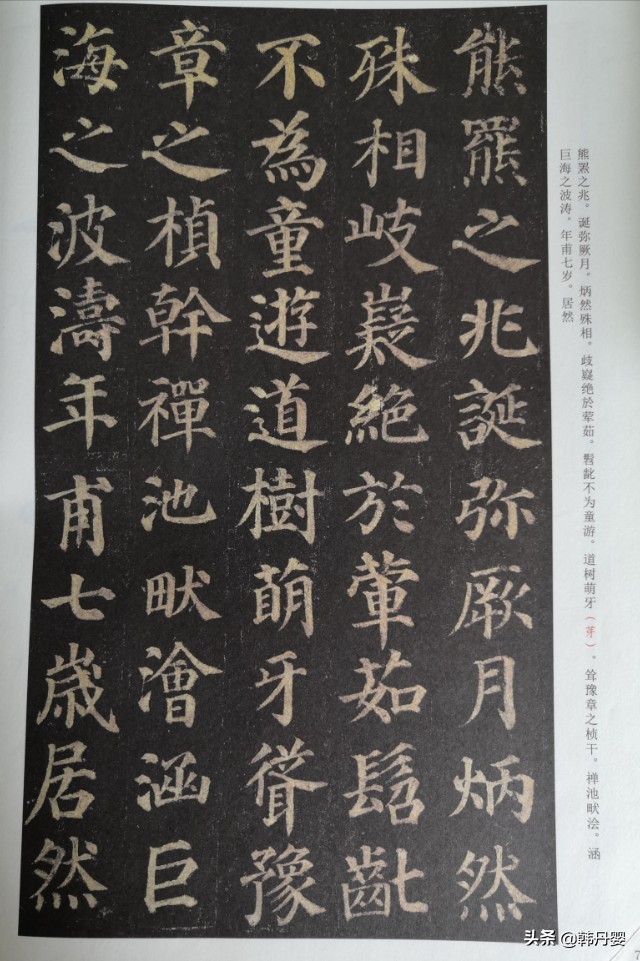 熊罴之兆。诞弥厥月。炳然殊相。歧嶷绝於荤茹。髫龀不为童游。道树萌牙（芽）。耸豫章之桢干。禅池畎浍。涵
巨海之波涛。年甫七岁。居然
熊羆之兆誕弥厥月炳然
殊相岐嶷絶於葷茹髫齔
不為童遊道樹萌牙聳豫
章之楨幹禪池畎澮涵巨
海之波濤年甫七歳居然
7
头条 @韩丹婴